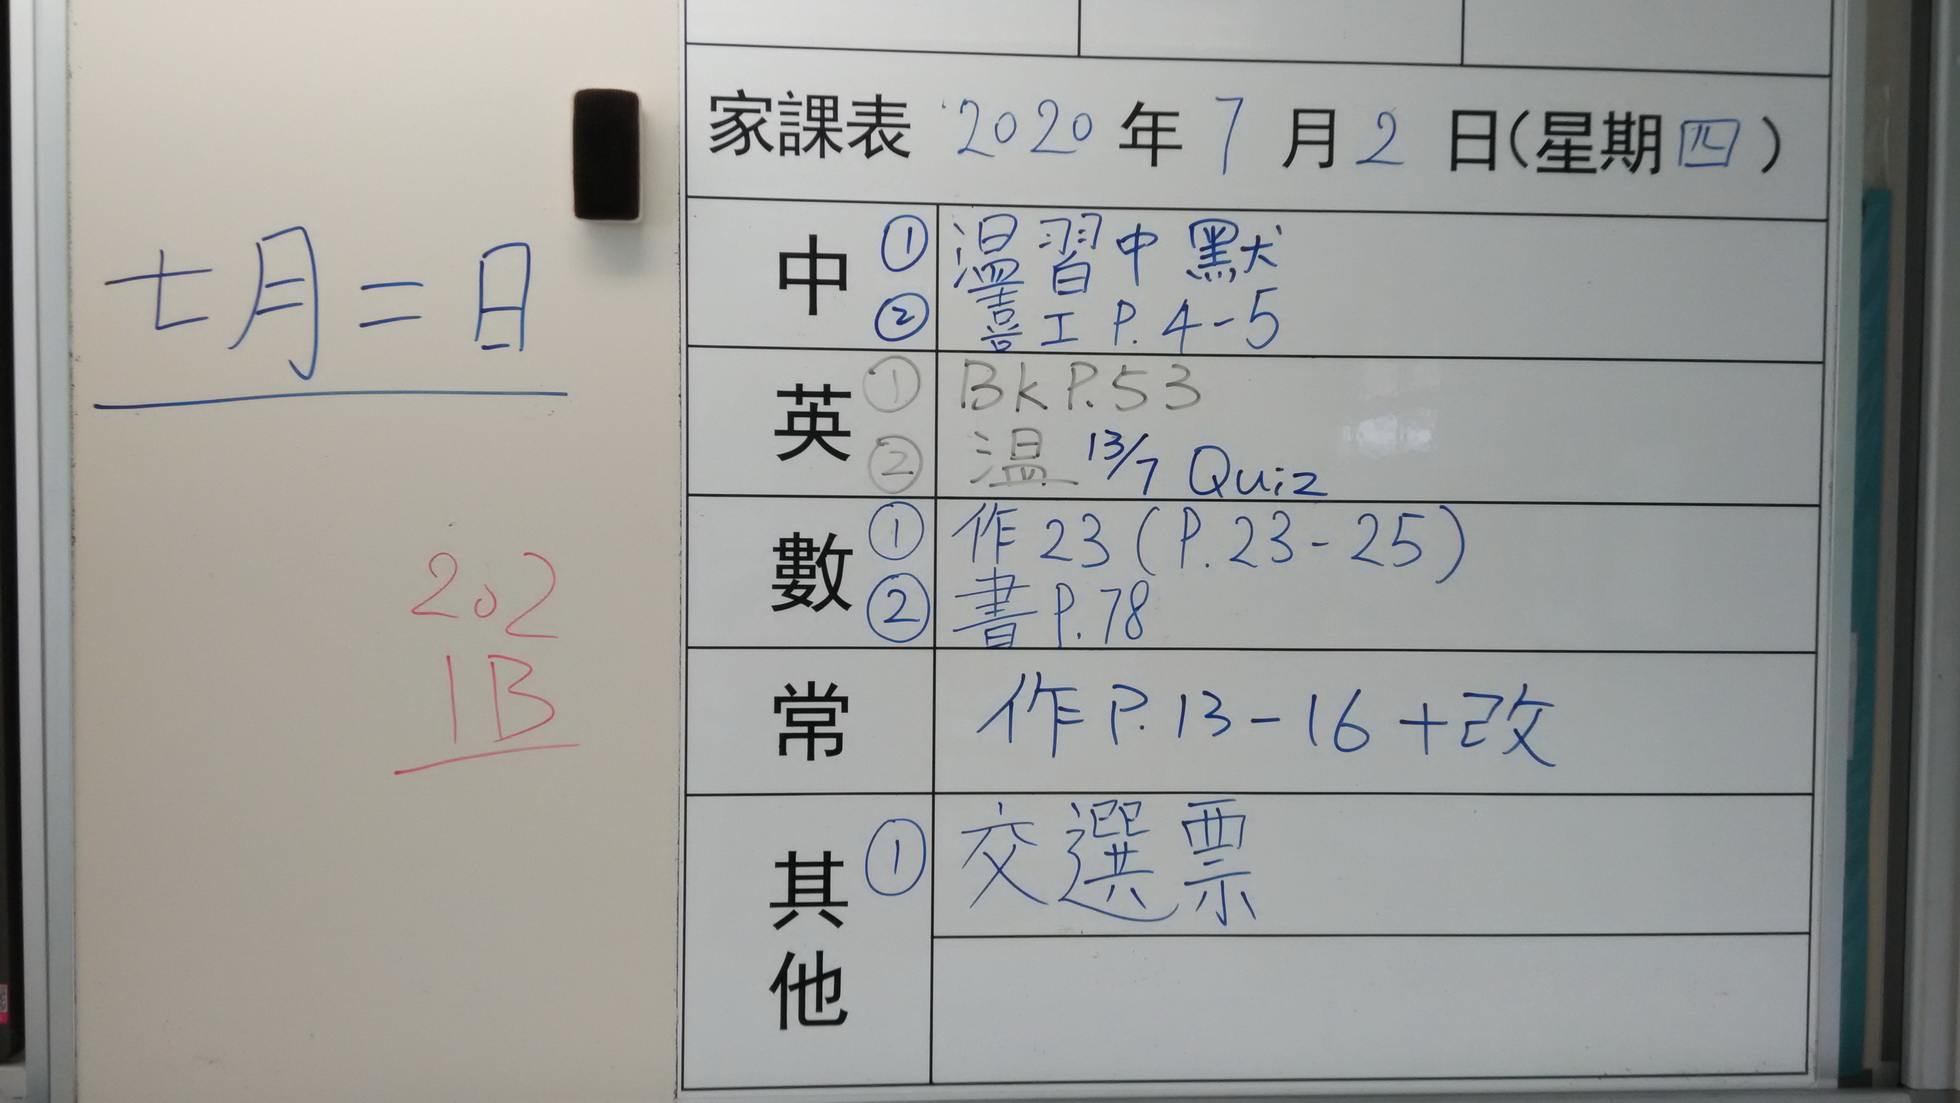 七月二日
202
1B
家課表 2020年7月2日(星期四)
中 ① 温習中默
② 書工 P.4-5
英 ① Bk P.53
② 温 13/7 Quiz
數 ① 作23(P.23-25)
② 書P.78
常 作P.13-16+改
其他 ① 交選票